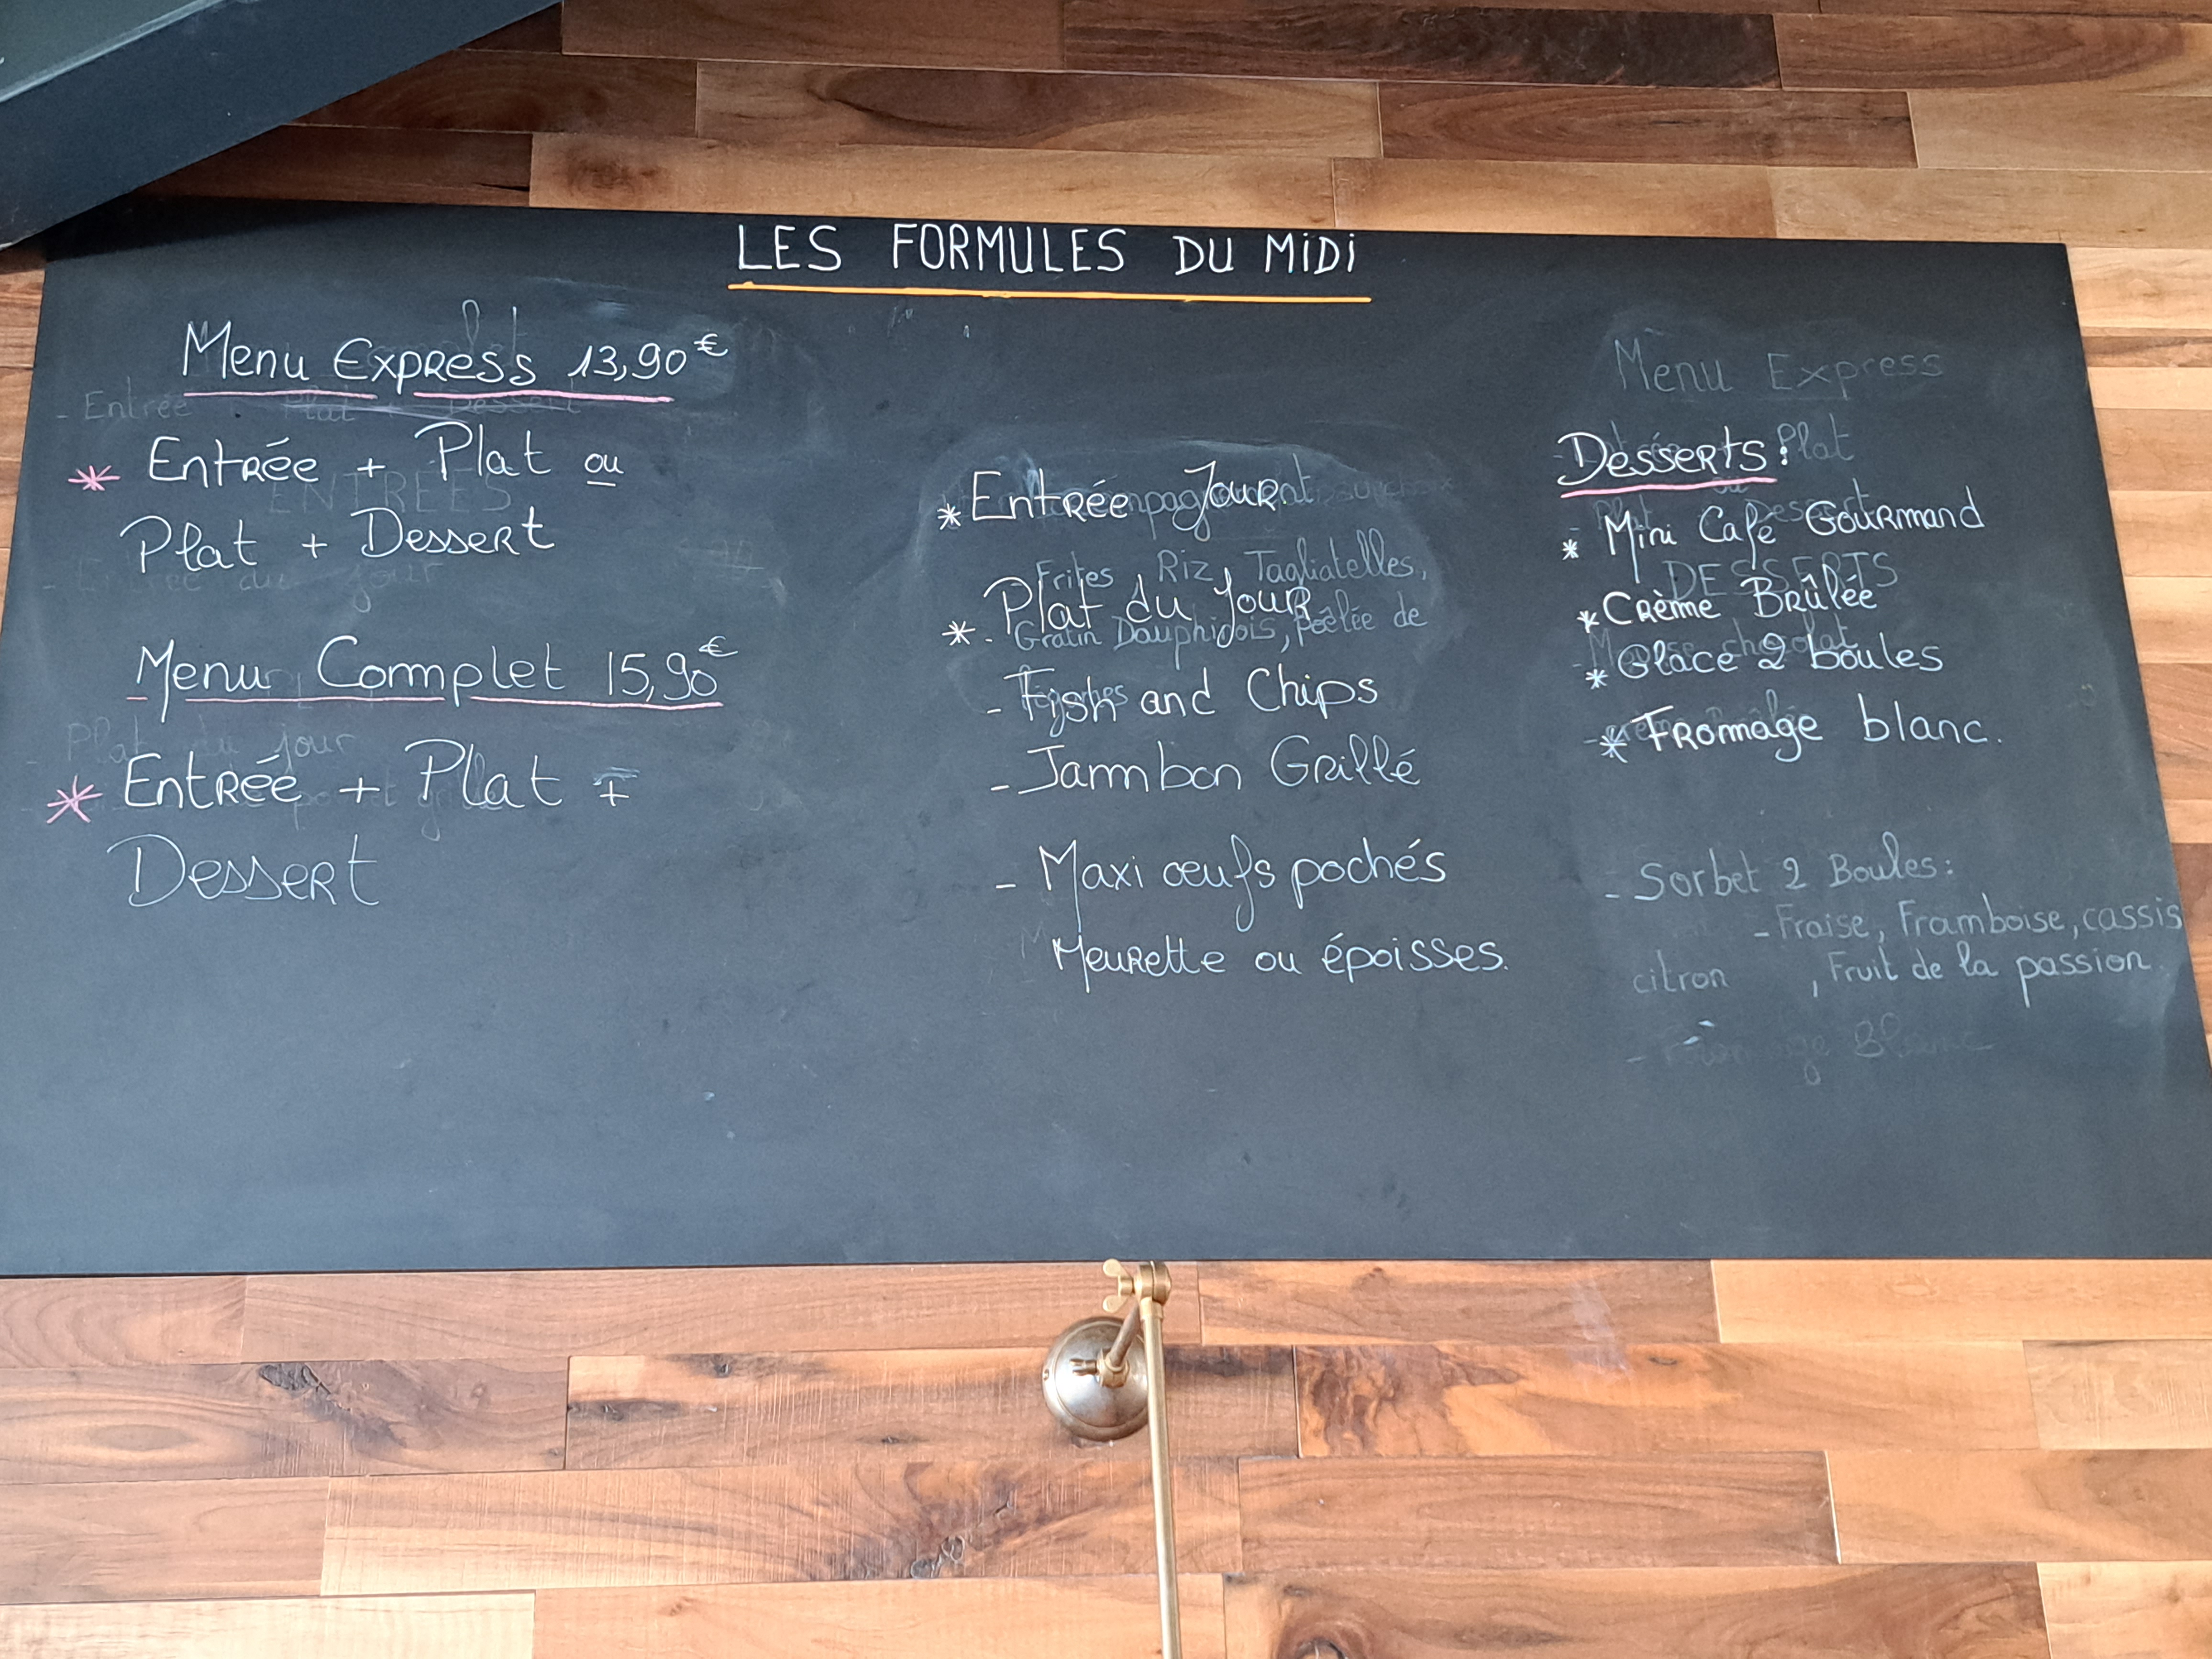 LES FORMULES DU MiDi
Menu Express 13,90€
* Entrée + Plat ou
Plat + Dessert
Menu Complet 15,90€
* Entrée + Plat +
Dessert
* Entrée Jour.
Frites, Riz, Tagliatelles,
* Plat du Jour
Gratin Dauphinois, poêlée de
- Fish and Chips
- Jambon Grillé
- Maxi œufs pochés
Meurette ou époisses.
Menu Express
Desserts :
Plat
* Mini Café Gourmand
DESSERTS
* Crème Brûlée
* Glace 2 boules
* Fromage blanc.
- Sorbet 2 Boules:
- Fraise, Framboise, cassis
citron , Fruit de la passion.
- Entrée Plat Dessert
ENTREES
- Entrée du jour
- Plat du jour